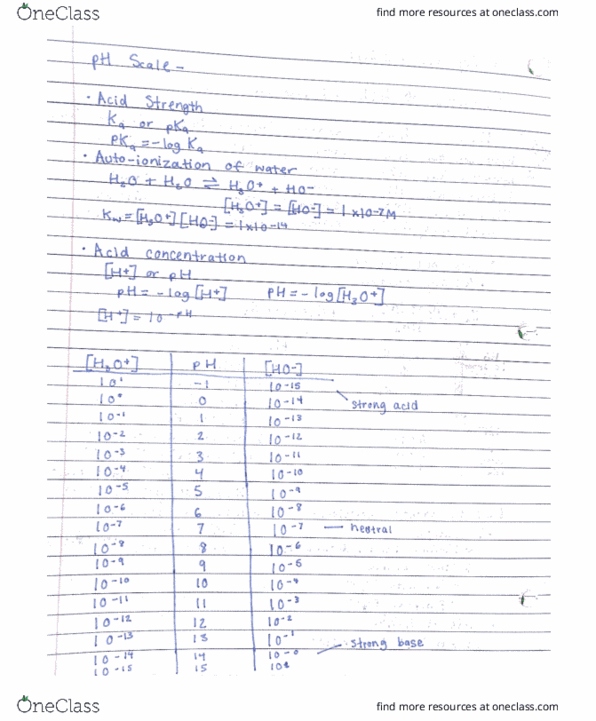 OneClass
find more resources at oneclass.com
pH Scale -
• Acid Strength
Ka or pKa
pKa = -log Ka
• Auto-ionization of water
H₂O + H₂O ⇌ H₃O+ + HO-
[H₃O+] = [HO-] = 1 x10-7M
Kw = [H₃O+][HO-] = 1x10-14
• Acid concentration
[H+] or pH
pH = -log[H+] pH = -log[H₃O+]
[H+] = 10-pH
[H₃O+] pH [HO-]
10¹ -1 10-15
10⁰ 0 10-14 strong acid
10-1 1 10-13
10-2 2 10-12
10-3 3 10-11
10-4 4 10-10
10-5 5 10-9
10-6 6 10-8
10-7 7 10-7 — neutral
10-8 8 10-6
10-9 9 10-5
10-10 10 10-4
10-11 11 10-3
10-12 12 10-2
10-13 13 10-1
10-14 14 10-0 strong base
10-15 15 10¹
OneClass
find more resources at oneclass.com